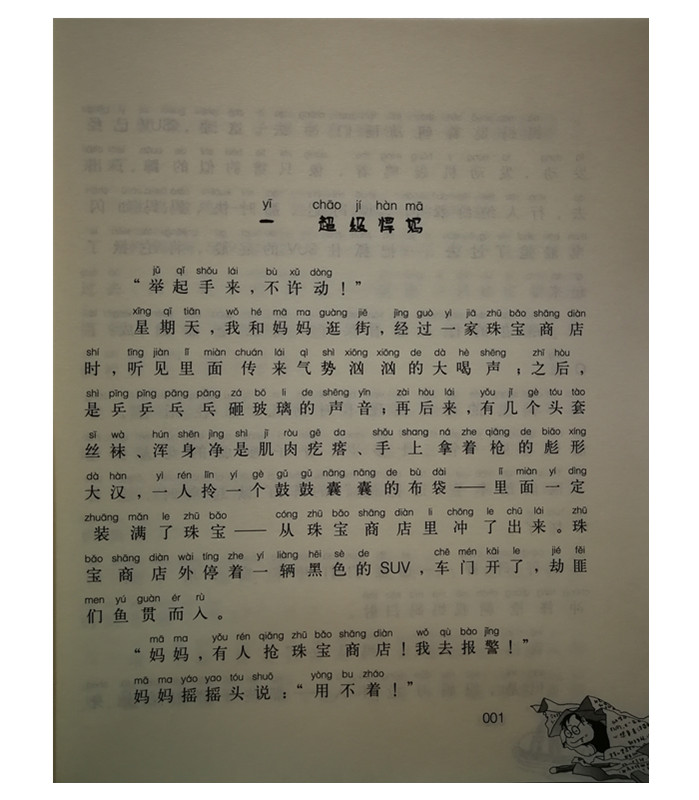 yī chāo jí hàn mā
一 超级悍妈
jǔ qǐ shǒu lái bù xǔ dòng
“举起手来，不许动！”
xīng qī tiān wǒ hé mā ma guàng jiē jīng guò yì jiā zhū bǎo shāng diàn
星期天，我和妈妈逛街，经过一家珠宝商店
shí tīng jiàn lǐ miàn chuán lái qì shì xiōng xiōng de dà hè shēng zhī hòu
时，听见里面传来气势汹汹的大喝声；之后，
shì pīng pīng pāng pāng zá bō li de shēng yīn zài hòu lái yǒu jǐ gè tóu tào
是乒乒乓乓砸玻璃的声音；再后来，有几个头套
sī wà hún shēn jìng shì jī ròu gē da shǒu shang ná zhe qiāng de biāo xíng
丝袜、浑身净是肌肉疙瘩、手上拿着枪的彪形
dà hàn yì rén līn yí gè gǔ gǔ nāng nāng de bù dài lǐ miàn yí dìng
大汉，一人拎一个鼓鼓囊囊的布袋——里面一定
zhuāng mǎn le zhū bǎo cóng zhū bǎo shāng diàn li chōng le chū lái zhū
装满了珠宝——从珠宝商店里冲了出来。珠
bǎo shāng diàn wài tíng zhe yí liàng hēi sè de chē mén kāi le jié fěi
宝商店外停着一辆黑色的SUV，车门开了，劫匪
men yú guàn ér rù
们鱼贯而入。
mā ma yǒu rén qiǎng zhū bǎo shāng diàn wǒ qù bào jǐng
“妈妈，有人抢珠宝商店！我去报警！”
mā ma yáo yao tóu shuō yòng bu zháo
妈妈摇摇头说：“用不着！”
001